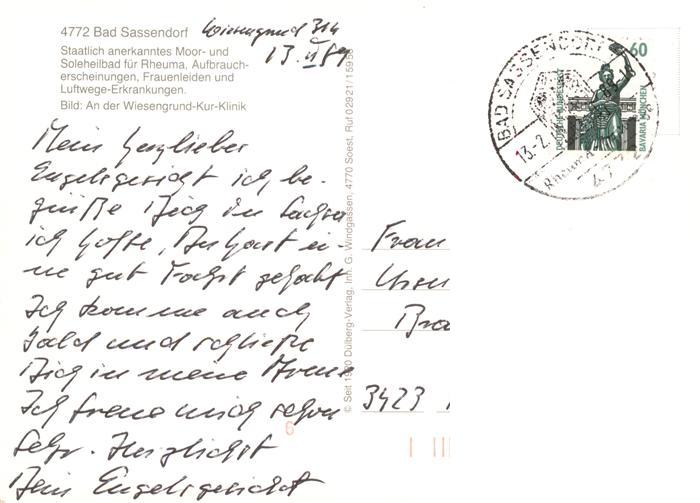 4772 Bad Sassendorf Wiesengrund 314
Staatlich anerkanntes Moor- und
Soleheilbad für Rheuma, Aufbrauch-
erscheinungen, Frauenleiden und
Luftwege-Erkrankungen.
Bild: An der Wiesengrund-Kur-Klinik
13. II 89
Mein herzlieber
Engelsgesicht ich be-
grüße Dich in Sachsa
ich hoffe, Du hast ei-
ne gut Fahrt gehabt
Ich komme auch
bald und schließe
Dich in meine Arme
Ich freue mich schon
sehr. Herzlichst
Dein Engelsgesicht
© Seit 1920 Dülberg-Verlag, Inh. G. Windgassen, 4770 Soest, Ruf 02921/15958
6
BAD SASSENDORF
13.-2.
Rheuma
4772
60
DEUTSCHE BUNDESPOST
BAVARIA MÜNCHEN
Frau
3423